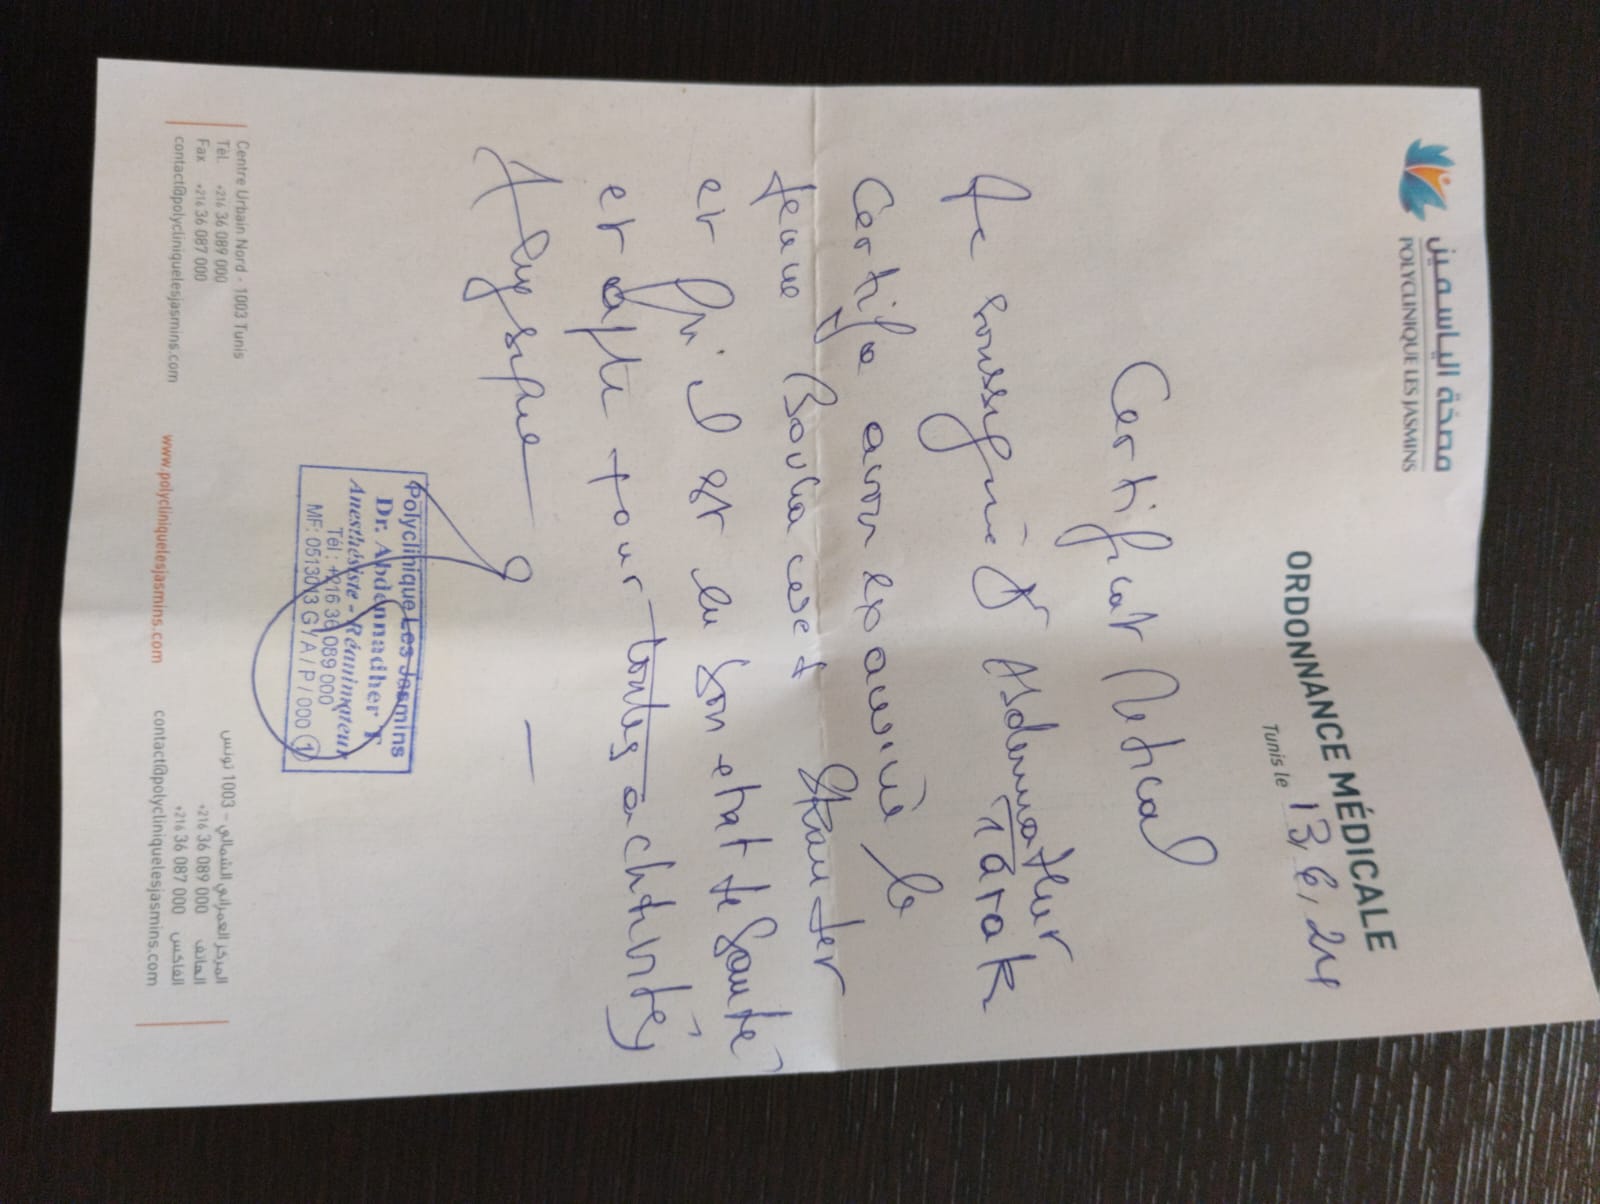 مصحة الياسمين
POLYCLINIQUE LES JASMINS
ORDONNANCE MÉDICALE
Tunis le 13, 6, 24
Certificat Medical
Je soussigné Dr
Tarak
Certifie avoir examiné le
jeune
et qu'il est en bon etat de Santé
et apte pour toutes activités
Physique
Polyclinique Les Jasmins
Dr. Abdennadher T
Anesthésiste - Réanimateur
Tél : +216 36 089 000
MF: 0513013 G / A / P / 000
Centre Urbain Nord - 1003 Tunis
Tél. +216 36 089 000
Fax +216 36 087 000
contact@polycliniquelesjasmins.com
www.polycliniquelesjasmins.com
المركز العمراني الشمالي - 1003 تونس
الهاتف +216 36 089 000
الفاكس +216 36 087 000
contact@polycliniquelesjasmins.com